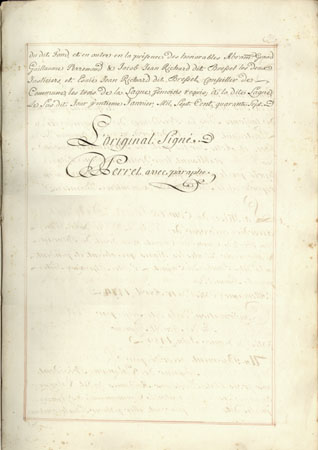 du dit Jond et en autres en la présence des honorables Abram
Guillaume Perrenoud & Jacob Jean Richard dit Bressel les deux
Justiciers et Louis Jean Richard dit Bressel Conseiller de
Commune, les trois de la Sagne, temoins requis, à la dite Sagne
Le Sus dit Jour Vintième Janvier, Mil, Sept, Cent, quarante Sept.
L'original Signé.
Perret avec paraphe,